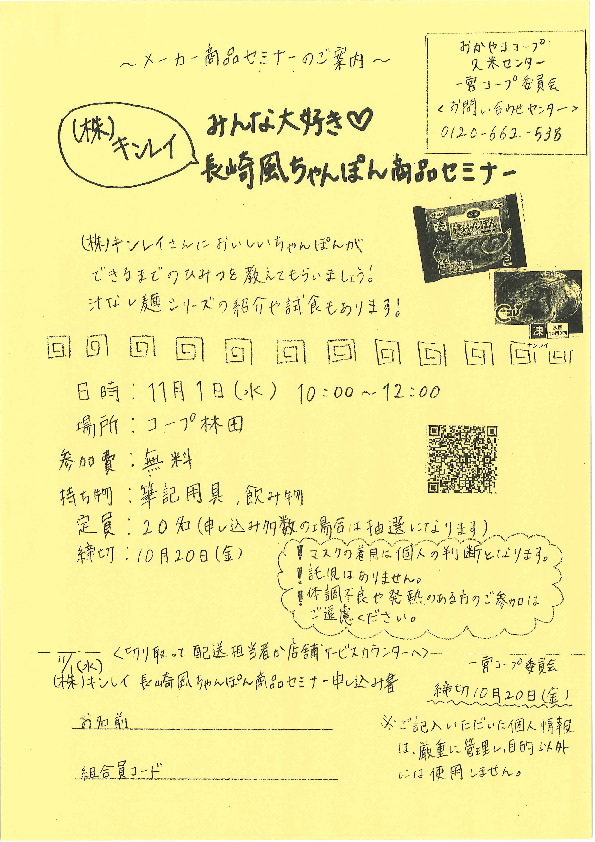 ～メーカー商品セミナーのご案内～
おかやまコープ
久米センター
一宮コープ委員会
<お問い合わせセンター>
0120-662-538
(株)キンレイ
みんな大好き♡
長崎風ちゃんぽん商品セミナー
(株)キンレイさんにおいしいちゃんぽんが
できるまでのひみつを教えてもらいましょう!
汁なし麺シリーズの紹介や試食もあります!
キンレイ
日時：11月1日(水) 10:00～12:00
場所：コープ林田
参加費：無料
持ち物：筆記用具、飲み物
定員：20名(申し込み多数の場合は抽選になります)
締切：10月20日(金)
!マスクの着用は個人の判断となります。
!託児はありません。
!体調不良や発熱のある方のご参加は
ご遠慮ください。
<切り取って配送担当者か店舗サービスカウンターへ>
11/1(水)
(株)キンレイ 長崎風ちゃんぽん商品セミナー申し込み書
一宮コープ委員会
締切10月20日(金)
お名前
組合員コード
※ご記入いただいた個人情報
は、厳重に管理し、目的以外
には使用しません。